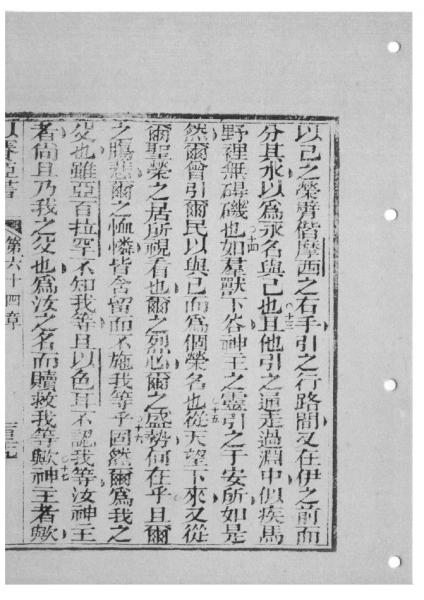 以己之榮臂偕摩西之右手引之行路間又在伊之前而
分其水以爲永名與己也十三且他引之通走過淵中似疾馬
野裡無碍磯也十四如羣獸下谷神王之靈引之于安所如是
然爾曾引爾民以與己而爲個榮名也十五從天望下來又從
爾聖榮之居所視看也爾之烈心爾之盛勢何在乎且爾
之腸悲爾之恤憐皆含留而不施我等乎十六固然爾爲我之
父也雖亞百拉罕不知我等且以色耳不認我等汝神王
者尚且乃我之父也爲汝之名而贖救我等歟十七神王者歟
以賽亞書
第六十四章